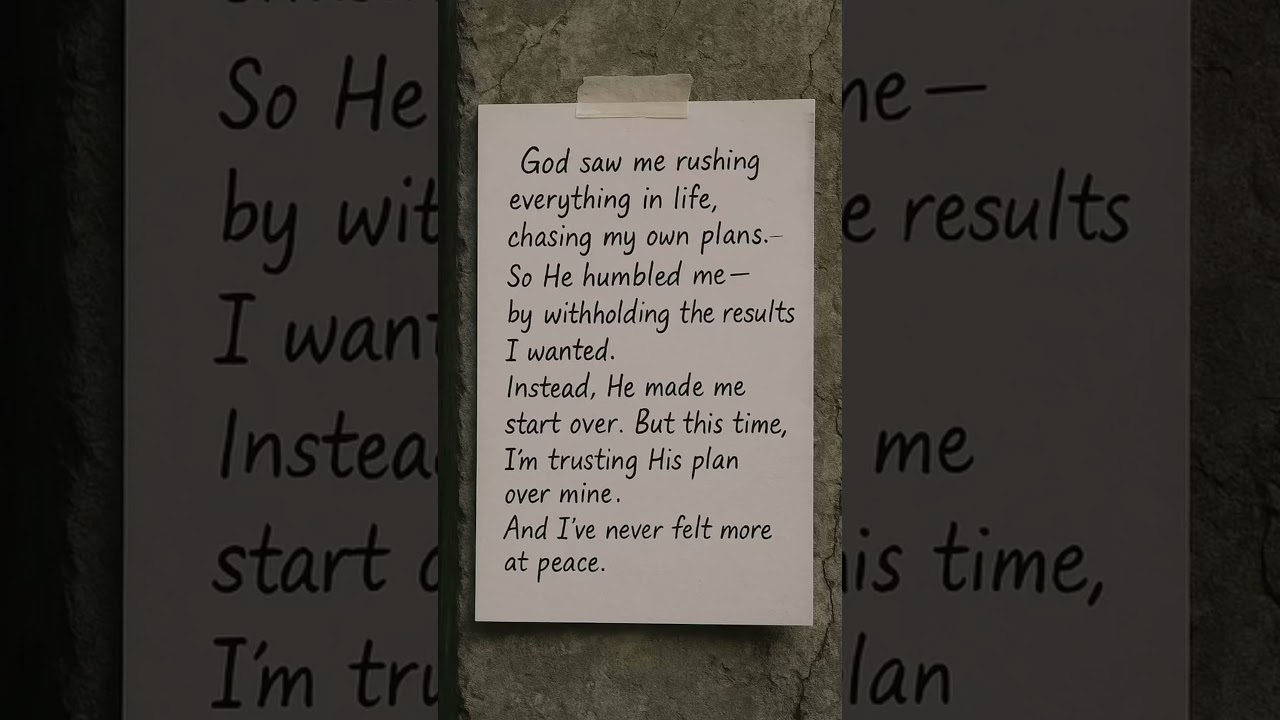 God saw me rushing
everything in life,
chasing my own plans.–
So He humbled me—
by withholding the results
I wanted.
Instead, He made me
start over. But this time,
I'm trusting His plan
over mine.
And I've never felt more
at peace.